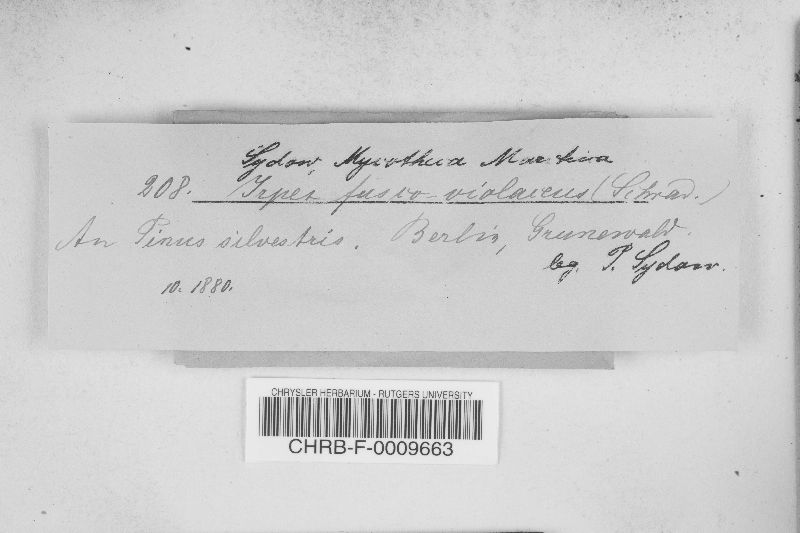 Sydow, Mycotheca Marchica
208. Irpex fusco-violaceus (Schrad.)
An Pinus silvestris. Berlin, Grunewald.
leg. P. Sydow.
10. 1880.
CHRYSLER HERBARIUM - RUTGERS UNIVERSITY
CHRB-F-0009663